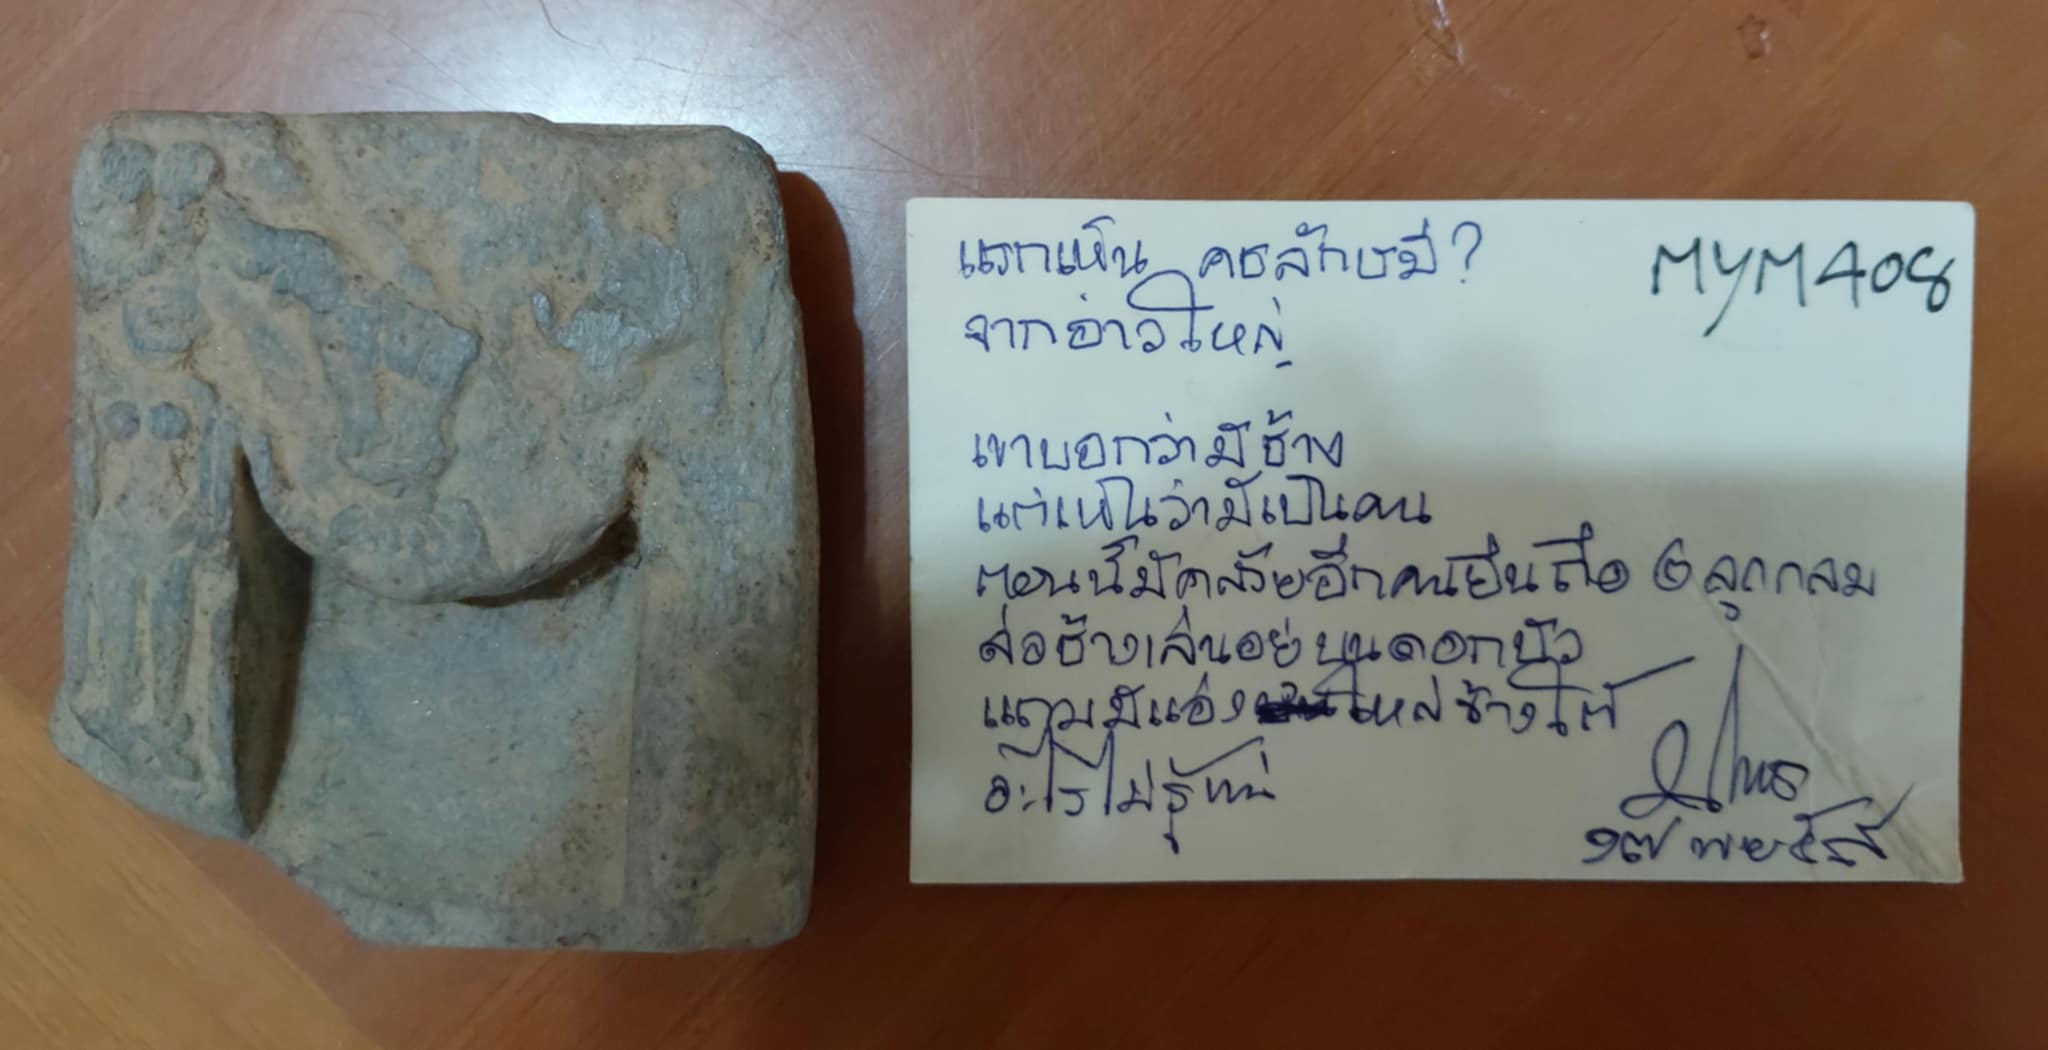 แรกเห็น คชลักษมี? MYM408
จากอ่าวใหญ่
เขาบอกว่ามีช้าง
แต่เห็นว่ามีเป็นคน
ตอนนี้มีคล้ายอีกคนยืนถือ ๒ ลูกกลม
ล่อช้างเล่นอยู่บนดอกบัว
แถมมีแอ่ง ใหล่ข้างใต้
อะไรไม่รู้แน่
๑๗ พย